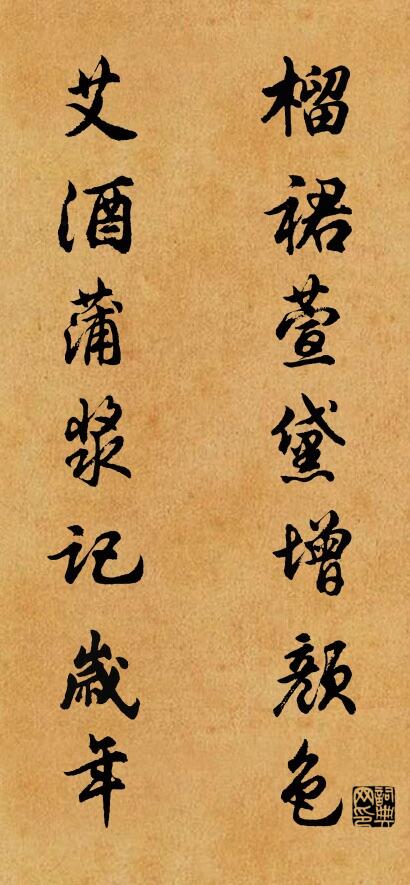 榴裙萱黛增颜色
艾酒蒲浆记岁年
词典网印